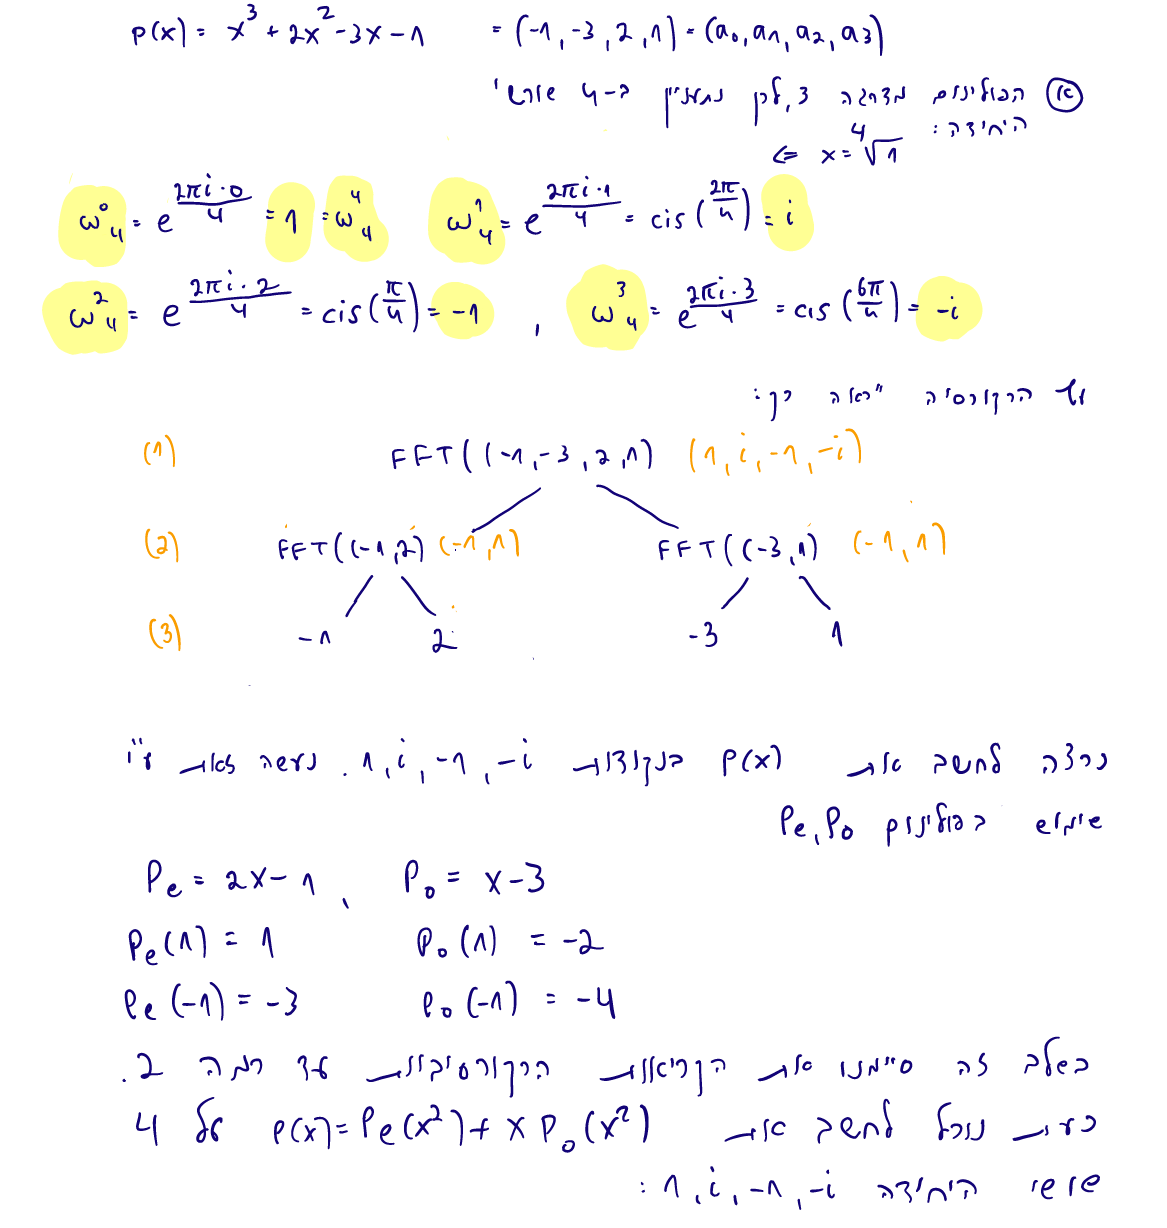 p(x) = x³ + 2x² - 3x - 1 = (-1, -3, 2, 1) = (a₀, a₁, a₂, a₃)
א) הפולינום מדרגה 3, לכן נתעניין ב-4 שורשי
היחידה: x = ⁴√1 ⇐
ω₄⁰ = e^(2πi·0/4) = 1 = ω₄⁴ ω₄¹ = e^(2πi·1/4) = cis(2π/4) = i
ω₄² = e^(2πi·2/4) = cis(π/4) = -1 , ω₄³ = e^(2πi·3/4) = cis(6π/4) = -i
עץ הרקורסיה יראה כך:
(1) FFT((-1, -3, 2, 1) (1, i, -1, -i)
(2) FFT((-1, 2) (-1, 1) FFT((-3, 1) (-1, 1)
(3) -1 2 -3 1
נרצה לחשב את p(x) בנקודות 1, i, -1, -i. נעשה זאת ע"י
שימוש בפולינום Pe, Po
Pe = 2x - 1 , Po = x - 3
Pe(1) = 1 Po(1) = -2
Pe(-1) = -3 Po(-1) = -4
בשלב זה סיימנו את הקריאות הרקורסיביות עד רמה 2.
כעת נוכל לחשב את p(x) = Pe(x²) + x Po(x²) על 4
שורשי היחידה 1, i, -1, -i :